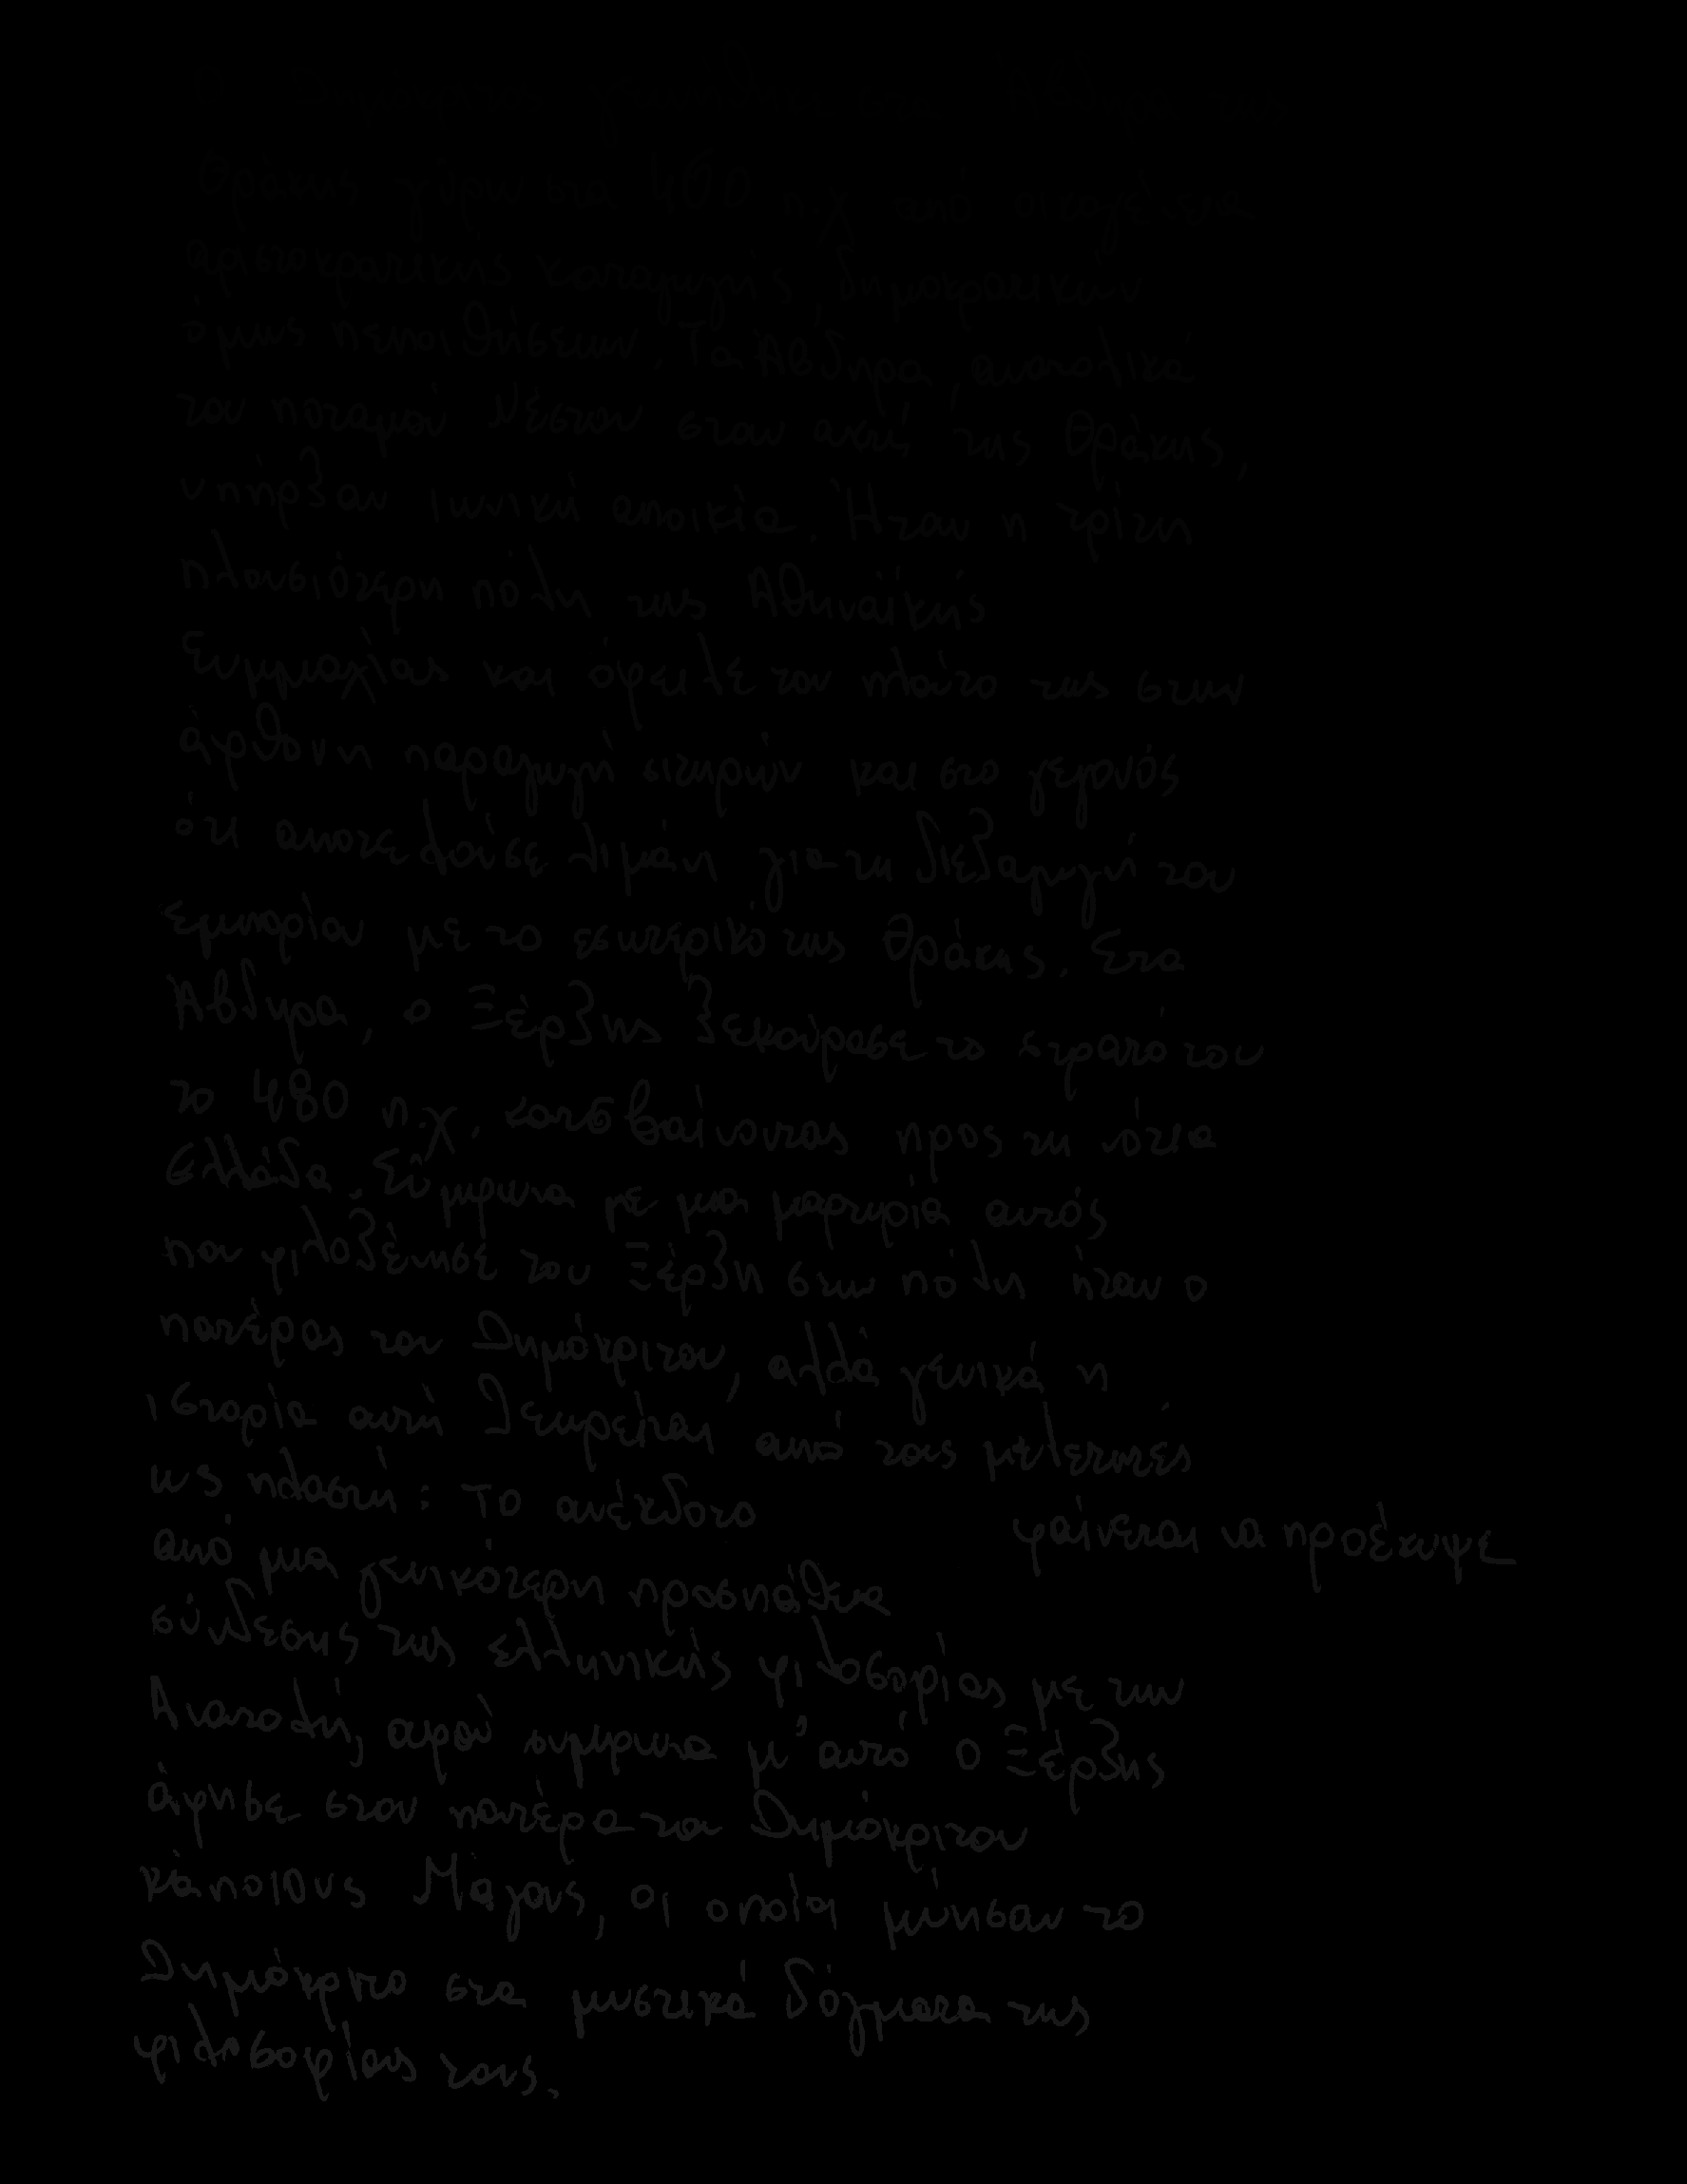 Ο Δημόκριτος γεννήθηκε στα Άβδηρα της
Θράκης γύρω στα 460 π.χ από οικογένεια
αριστοκρατικής καταγωγής, δημοκρατικών
όμως πεποιθήσεων. Τα Άβδηρα, ανατολικά
του ποταμού Νέστου στην ακτή της Θράκης,
υπήρξαν ιωνική αποικία. Ήταν η τρίτη
πλουσιότερη πόλη της Αθηναϊκής
Συμμαχίας και όφειλε τον πλούτο της στην
άφθονη παραγωγή σιτηρών και στο γεγονός
ότι αποτελούσε λιμάνι για τη διεξαγωγή του
εμπορίου με το εσωτερικό της Θράκης. Στα
Άβδηρα, ο Ξέρξης ξεκούρασε το στρατό του
το 480 π.χ. κατεβαίνοντας προς τη νότια
Ελλάδα. Σύμφωνα με μια μαρτυρία αυτός
που φιλοξένησε τον Ξέρξη στην πόλη ήταν ο
πατέρας του Δημόκριτου, αλλά γενικά η
ιστορία αυτή θεωρείται από τους μελετητές
ως πλαστή: το ανέκδοτο φαίνεται να προέκυψε
από μια γενικότερη προσπάθεια
σύνδεσης της ελληνικής φιλοσοφίας με την
Ανατολή, αφού σύμφωνα μ' αυτό ο Ξέρξης
άφησε στον πατέρα του Δημόκριτου
κάποιους Μάγους, οι οποίοι μύησαν το
Δημόκριτο στα μυστικά δόγματα της
φιλοσοφίας τους.